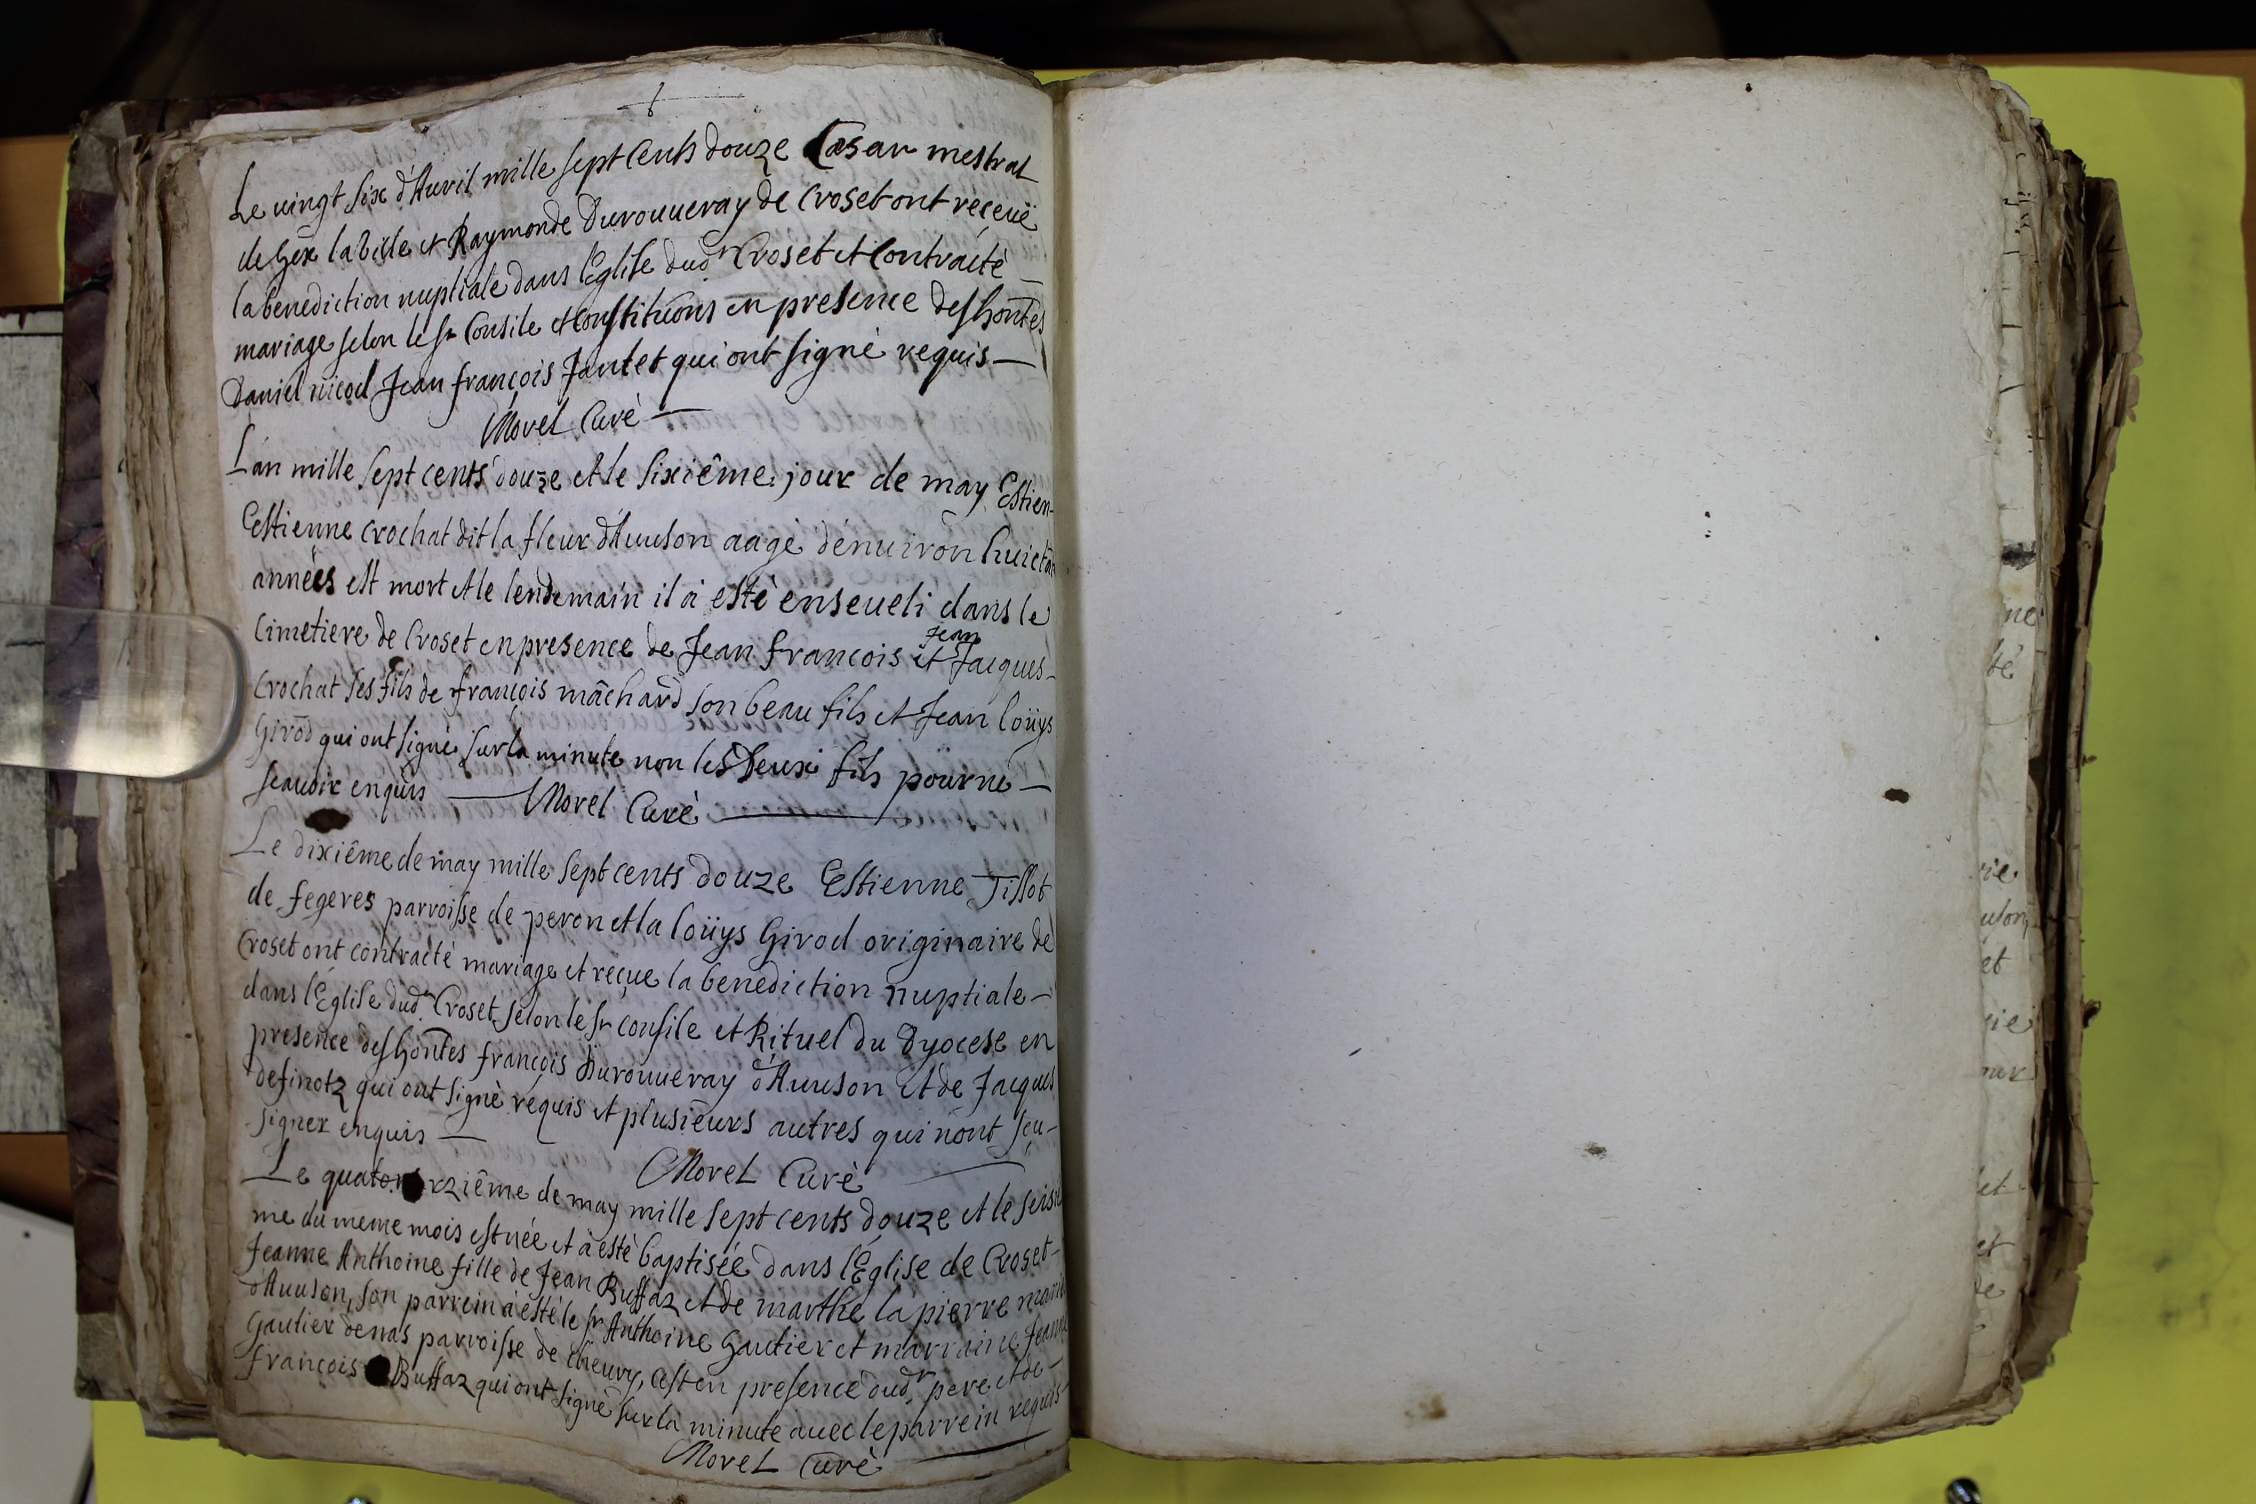 6
Le vingt six d'Auril mille sept cents douze Cæsar mestral
de Gex la ville et Raymonde Durouueray de Croset ont reçeuë
la benediction nuptiale dans l'Eglise dud.t Croset et Contraité
mariage selon le st Consile et Constituõns en presence des honn̄tes
Daniel nicod Jean françois Jantet qui ont signè requis —
Morel Curè —
L'an mille sept cents douze et le sixiême jour de may Estien-
Estienne crochat dit la fleur d'Auuson aagè dénuiron huictā
annees est mort et le lendemain il à estè enseueli dans le
Cimetiere de Croset en presence de Jean francois et Jean Jacques-
Crochat ses fils de françois mâchard son beau fils et Jean loüys
Girod qui ont signè sur la minute non les deux fils pour ne —
scauoir enquis — Morel Curè —
Le dixiême de may mille sept cents douze Estienne Tissot
de fegeres parroisse de peron et la loüys Girod originaire de
Croset ont contraitè mariage et reçue la benediction nuptiale -
dans l'Église dud.t Croset selon le st consile et Rituel du Dyocese en
presence des honn̄tes françois Durouueray d'Auuson et de Jacques
definotz qui ont signè requis et plusieurs autres qui n'ont sçu-
signer enquis —
Morel Curè
Le quator rziême de may mille sept cents douze et le seisie
me du meme mois est née et à estè baptisée dans l'Église de Croset-
Jeanne Anthoine fille de Jean Buffaz et de marthe la pierre
d'Auuson, son parrein à estè le sr Anthoine Gautier et marraine Jeanne
Gautier denas parroisse de cheury, cest en presence dud.t pere et de -
francois Buffaz qui ont signè sur la minute auec le parrein requis-
Morel Curè —
ne
bé
rie
uson
et
rie
our
et
et
de